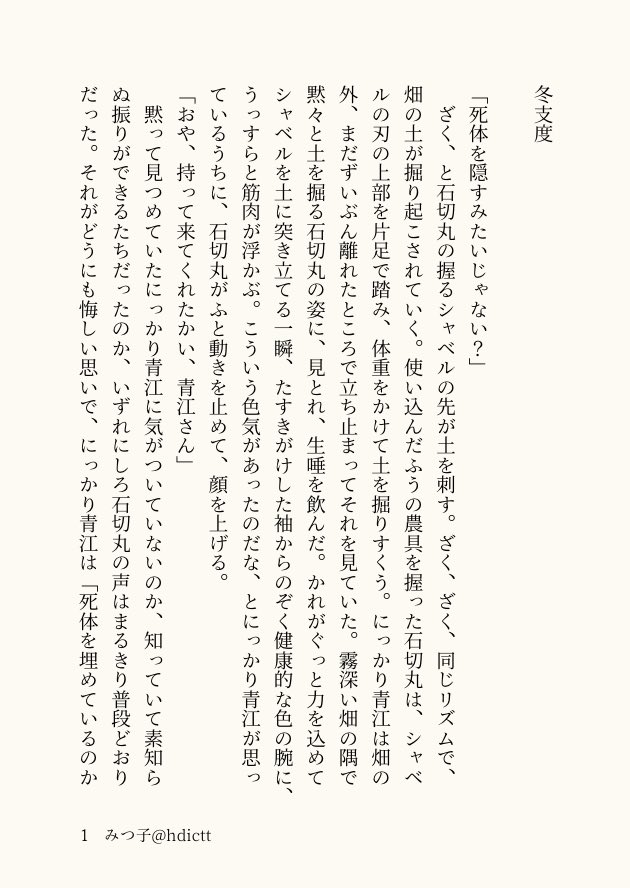 冬支度
「死体を隠すみたいじゃない？」
　ざく、と石切丸の握るシャベルの先が土を刺す。ざく、ざく、同じリズムで、
畑の土が掘り起こされていく。使い込んだふうの農具を握った石切丸は、シャベ
ルの刃の上部を片足で踏み、体重をかけて土を掘りすくう。にっかり青江は畑の
外、まだずいぶん離れたところで立ち止まってそれを見ていた。霧深い畑の隅で
黙々と土を掘る石切丸の姿に、見とれ、生唾を飲んだ。かれがぐっと力を込めて
シャベルを土に突き立てる一瞬、たすきがけした袖からのぞく健康的な色の腕に、
うっすらと筋肉が浮かぶ。こういう色気があったのだな、とにっかり青江が思っ
ているうちに、石切丸がふと動きを止めて、顔を上げる。
「おや、持って来てくれたかい、青江さん」
　黙って見つめていたにっかり青江に気がついていないのか、知っていて素知ら
ぬ振りができるたちだったのか、いずれにしろ石切丸の声はまるきり普段どおり
だった。それがどうにも悔しい思いで、にっかり青江は「死体を埋めているのか
1　みつ子@hdictt